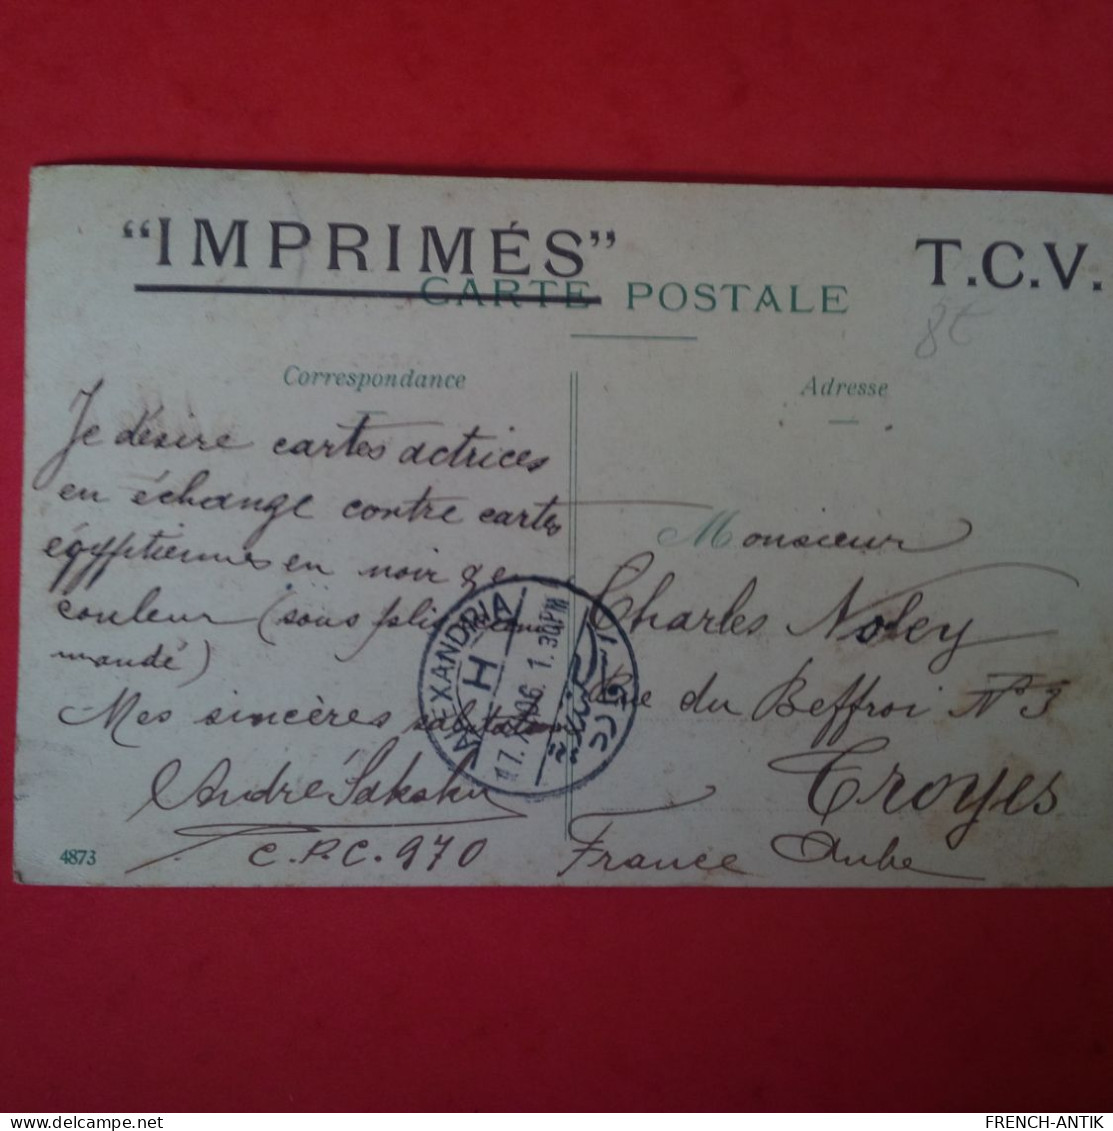 "IMPRIMÉS"
T.C.V.
CARTE POSTALE
8€
Correspondance
Adresse
Je désire cartes actrices
en échange contre cartes
égyptiennes en noir &
couleur (sous pli
mandé)
Mes sincères salutations
André
C.P.C. 970
Monsieur
Charles Noley
Rue du Beffroi N° 3
Troyes
France Aube
ALEXANDRIA
H
17. 06. 1.30PM
4873
FRENCH-ANTIK